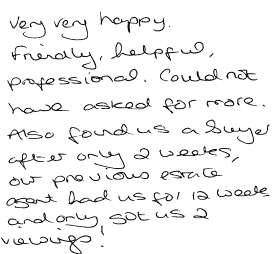 Very very happy.
Friendly, helpful,
professional. Could not
have asked for more.
Also found us a buyer
after only 2 weeks,
our previous estate
agent had us for 12 weeks
and only got us 2
viewings!